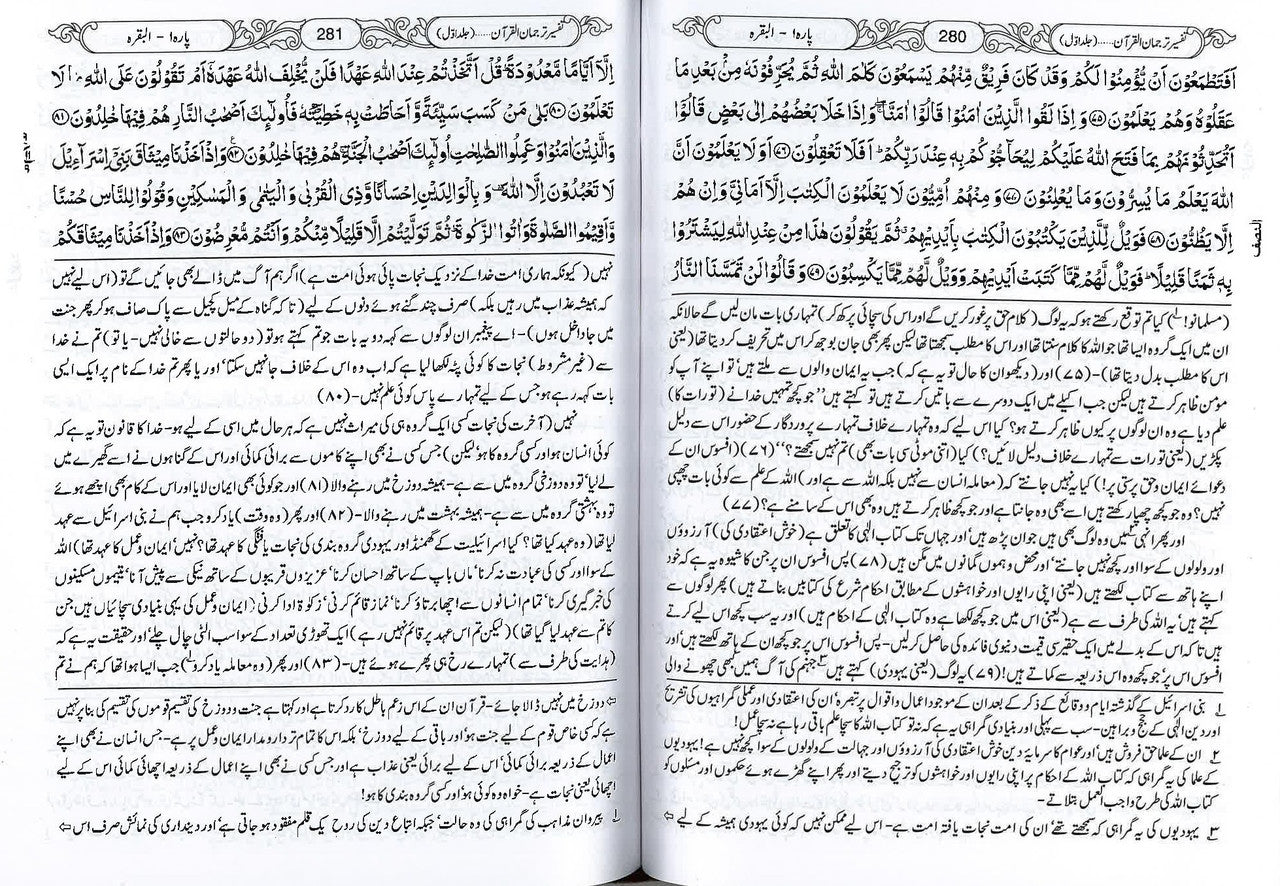 تفسیر ترجمان القرآن.....(جلد اوّل)
280
پارہ ۱ - البقرہ
اَفَتَطْمَعُوْنَ اَنْ يُّؤْمِنُوْا لَكُمْ وَقَدْ كَانَ فَرِيْقٌ مِّنْهُمْ يَسْمَعُوْنَ كَلٰمَ اللّٰهِ ثُمَّ يُحَرِّفُوْنَهٗ مِنْۢ بَعْدِ مَا
عَقَلُوْهُ وَهُمْ يَعْلَمُوْنَ ﴿۷۵﴾ وَ اِذَا لَقُوا الَّذِيْنَ اٰمَنُوْا قَالُوْٓا اٰمَنَّا ۖۚ وَاِذَا خَلَا بَعْضُهُمْ اِلٰى بَعْضٍ قَالُوْٓا
اَتُحَدِّثُوْنَهُمْ بِمَا فَتَحَ اللّٰهُ عَلَيْكُمْ لِيُحَآجُّوْكُمْ بِهٖ عِنْدَ رَبِّكُمْ ؕ اَفَلَا تَعْقِلُوْنَ ﴿۷۶﴾ اَوَ لَا يَعْلَمُوْنَ اَنَّ
اللّٰهَ يَعْلَمُ مَا يُسِرُّوْنَ وَمَا يُعْلِنُوْنَ ﴿۷۷﴾ وَ مِنْهُمْ اُمِّيُّوْنَ لَا يَعْلَمُوْنَ الْكِتٰبَ اِلَّآ اَمَانِيَّ وَاِنْ هُمْ
اِلَّا يَظُنُّوْنَ ﴿۷۸﴾ فَوَيْلٌ لِّلَّذِيْنَ يَكْتُبُوْنَ الْكِتٰبَ بِاَيْدِيْهِمْ ۗ ثُمَّ يَقُوْلُوْنَ هٰذَا مِنْ عِنْدِ اللّٰهِ لِيَشْتَرُوْا
بِهٖ ثَمَنًا قَلِيْلًا ؕ فَوَيْلٌ لَّهُمْ مِّمَّا كَتَبَتْ اَيْدِيْهِمْ وَوَيْلٌ لَّهُمْ مِّمَّا يَكْسِبُوْنَ ﴿۷۹﴾ وَ قَالُوْا لَنْ تَمَسَّنَا النَّارُ
النصف
(مسلمانو!) کیا تم توقع رکھتے ہو کہ یہ لوگ (کلام حق پر غور کریں گے اور اس کی سچائی پرکھ کر) تمہاری بات مان لیں گے حالانکہ
ان میں ایک گروہ ایسا تھا جو اللہ کا کلام سنتا تھا اور اس کا مطلب سمجھتا تھا لیکن پھر بھی جان بوجھ کر اس میں تحریف کر دیتا تھا (یعنی
اس کا مطلب بدل دیتا تھا)- (۷۵) اور (دیکھو ان کا حال تو یہ ہے کہ) جب یہ ایمان والوں سے ملتے ہیں' تو اپنے آپ کو
مؤمن ظاہر کرتے ہیں لیکن جب اکیلے میں ایک دوسرے سے باتیں کرتے ہیں تو کہتے ہیں ''جو کچھ تمہیں خدا نے (تورات کا)
علم دیا ہے وہ ان لوگوں پر کیوں ظاہر کرتے ہو؟ کیا اس لیے کہ وہ تمہارے خلاف تمہارے پروردگار کے حضور اس سے دلیل
پکڑیں (یعنی تورات سے تمہارے خلاف دلیل لائیں؟) کیا (اتنی موٹی سی بات بھی) تم نہیں سمجھتے؟'' (۷۶) (افسوس ان کے
دعوائے ایمان و حق پرستی پر!) کیا یہ نہیں جانتے کہ (معاملہ انسان سے نہیں بلکہ اللہ سے ہے اور) اللہ کے علم سے کوئی بات چھپی
نہیں؟ وہ جو کچھ چھپا رکھتے ہیں اسے بھی وہ جانتا ہے اور جو کچھ ظاہر کرتے ہیں وہ بھی اس کے سامنے ہے؟ (۷۷)
اور پھر انہی میں وہ لوگ بھی ہیں جو ان پڑھ ہیں' اور جہاں تک کتاب الٰہی کا تعلق ہے (خوش اعتقادی کی) آرزوؤں
اور ولولوں کے سوا اور کچھ نہیں جانتے' اور محض وہموں گمانوں میں مگن ہیں (۷۸) پس افسوس ان پر جن کا شیوہ یہ ہے کہ خود
اپنے ہاتھ سے کتاب لکھتے ہیں (یعنی اپنی رایوں اور خواہشوں کے مطابق احکام شرع کی کتابیں بناتے ہیں) پھر لوگوں سے
کہتے ہیں' یہ اللہ کی طرف سے ہے (یعنی اس میں جو کچھ لکھا ہے وہ کتاب الٰہی کے احکام ہیں) اور یہ سب کچھ اس لیے کرتے
ہیں تاکہ اس کے بدلے میں ایک حقیر سی قیمت دنیوی فائدہ کی حاصل کر لیں- پس افسوس اس پر جو کچھ ان کے ہاتھ لکھتے ہیں' اور
افسوس اس پر' جو کچھ وہ اس ذریعہ سے کماتے ہیں! (۷۹) یہ لوگ (یعنی یہودی) کہتے ہیں ۳ جہنم کی آگ ہمیں بھی چھونے والی
۱ بنی اسرائیل کے گذشتہ ایام و وقائع کے ذکر کے بعد ان کے موجود اعمال و اقوال پر تبصرہ' ان کی اعتقادی اور عملی گمراہیوں کی تشریح
اور دین الٰہی کے حجج و براہین- سب سے پہلی اور بنیادی گمراہی یہ ہے کہ نہ تو کتاب اللہ کا سچا علم باقی رہا ہے نہ سچا عمل!
۲ ان کے علما حق فروش ہیں' اور عوام کا سرمایۂ دین خوش اعتقادی کی آرزوؤں اور جہالت کے ولولوں کے سوا کچھ نہیں ہے! یہودیوں
کے علما کی یہ گمراہی کہ کتاب اللہ کے احکام پر اپنی رایوں اور خواہشوں کو ترجیح دیتے اور پھر اپنے گھڑے ہوئے حکموں اور مسئلوں کو
کتاب اللہ کی طرح واجب العمل بتلاتے-
۳ یہودیوں کی یہ گمراہی کہ سمجھتے تھے' ان کی امت نجات یافتہ امت ہے- اس لیے ممکن نہیں کہ کوئی یہودی ہمیشہ کے لیے ⇦
تفسیر ترجمان القرآن.....(جلد اوّل)
281
پارہ ۱ - البقرہ
اِلَّآ اَيَّامًا مَّعْدُوْدَةً ؕ قُلْ اَتَّخَذْتُمْ عِنْدَ اللّٰهِ عَهْدًا فَلَنْ يُّخْلِفَ اللّٰهُ عَهْدَهٗٓ اَمْ تَقُوْلُوْنَ عَلَى اللّٰهِ مَا لَا
تَعْلَمُوْنَ ﴿۸۰﴾ بَلٰى مَنْ كَسَبَ سَيِّئَةً وَّ اَحَاطَتْ بِهٖ خَطِيْٓـَٔتُهٗ فَاُولٰٓئِكَ اَصْحٰبُ النَّارِ هُمْ فِيْهَا خٰلِدُوْنَ ﴿۸۱﴾
وَالَّذِيْنَ اٰمَنُوْا وَ عَمِلُوا الصّٰلِحٰتِ اُولٰٓئِكَ اَصْحٰبُ الْجَنَّةِ ۚ هُمْ فِيْهَا خٰلِدُوْنَ ﴿۸۲﴾ وَاِذْ اَخَذْنَا مِيْثَاقَ بَنِيْٓ اِسْرَآءِيْلَ
لَا تَعْبُدُوْنَ اِلَّا اللّٰهَ ۫ وَ بِالْوَالِدَيْنِ اِحْسَانًا وَّ ذِي الْقُرْبٰى وَ الْيَتٰمٰى وَ الْمَسٰكِيْنِ وَ قُوْلُوْا لِلنَّاسِ حُسْنًا
وَّ اَقِيْمُوا الصَّلٰوةَ وَ اٰتُوا الزَّكٰوةَ ؕ ثُمَّ تَوَلَّيْتُمْ اِلَّا قَلِيْلًا مِّنْكُمْ وَ اَنْتُمْ مُّعْرِضُوْنَ ﴿۸۳﴾ وَ اِذْ اَخَذْنَا مِيْثَاقَكُمْ
نہیں (کیونکہ ہماری امت خدا کے نزدیک نجات پائی ہوئی امت ہے) اگر ہم آگ میں ڈالے بھی جائیں گے تو (اس لیے نہیں
کہ ہمیشہ عذاب میں رہیں بلکہ) صرف چند گنے ہوئے دنوں کے لیے (تاکہ گناہ کے میل کچیل سے پاک صاف ہو کر پھر جنت
میں جا داخل ہوں)- اے پیغمبر ان لوگوں سے کہہ دو یہ بات جو تم کہتے ہو تو (دو حالتوں سے خالی نہیں- یا تو) تم نے خدا
سے (غیر مشروط) نجات کا کوئی پٹہ لکھا لیا ہے کہ اب وہ اس کے خلاف جا نہیں سکتا' اور یا پھر تم خدا کے نام پر ایک ایسی
بات کہہ رہے ہو جس کے لیے تمہارے پاس کوئی علم نہیں- (۸۰)
نہیں (آخرت کی نجات کسی ایک گروہ ہی کی میراث نہیں ہے کہ ہر حال میں اسی کے لیے ہو- خدا کا قانون تو یہ ہے کہ
کوئی انسان ہو اور کسی گروہ کا ہو' لیکن) جس کسی نے بھی اپنے کاموں سے برائی کمائی اور اس کے گناہوں نے اسے گھیرے میں
لے لیا' تو وہ دوزخی گروہ میں سے ہے- ہمیشہ دوزخ میں رہنے والا (۸۱) اور جو کوئی بھی ایمان لایا اور اس کے کام بھی اچھے ہوئے
تو وہ بہشتی گروہ میں سے ہے- ہمیشہ بہشت میں رہنے والا- (۸۲) اور پھر (وہ وقت) یاد کرو جب ہم نے بنی اسرائیل سے عہد
لیا تھا (وہ عہد کیا تھا؟ کیا اسرائیلیت کے گھمنڈ اور یہودی گروہ بندی کی نجات یافتگی کا عہد تھا؟ نہیں' ایمان و عمل کا عہد تھا) اللہ
کے سوا اور کسی کی عبادت نہ کرنا' ماں باپ کے ساتھ احسان کرنا' عزیزوں قریبوں کے ساتھ نیکی سے پیش آنا' یتیموں مسکینوں
کی خبر گیری کرنا' تمام انسانوں سے اچھا برتاؤ کرنا' نماز قائم کرنی' زکوٰۃ ادا کرنی (ایمان و عمل کی یہی بنیادی سچائیاں ہیں جن
کا تم سے عہد لیا گیا تھا) (لیکن تم اس عہد پر قائم نہیں رہے) ایک تھوڑی تعداد کے سوا سب الٹی چال چلے' اور حقیقت یہ ہے کہ
(ہدایت کی طرف سے) تمہارے رخ ہی پھرے ہوئے ہیں- (۸۳) اور پھر (وہ معاملہ یاد کرو ۱) جب ایسا ہوا تھا کہ ہم نے تم
⇦ دوزخ میں نہیں ڈالا جائے- قرآن ان کے اس زعم باطل کا رد کرتا ہے اور کہتا ہے جنت و دوزخ کی تقسیم قوموں کی تقسیم کی بنا پر نہیں
ہے کہ کسی خاص قوم کے لیے جنت ہو' اور باقی کے لیے دوزخ' بلکہ اس کا تمام تر دار و مدار ایمان و عمل پر ہے- جس انسان نے بھی اپنے
اعمال کے ذریعہ برائی کمائی' اس کے لیے برائی یعنی عذاب ہے اور جس کسی نے بھی اپنے اعمال کے ذریعہ اچھائی کمائی اس کے لیے
اچھائی یعنی نجات ہے- خواہ وہ کوئی ہو' اور کسی گروہ بندی کا ہو!
۱ پیروان مذاہب کی گمراہی کی وہ حالت' جبکہ اتباع دین کی روح یک قلم مفقود ہو جاتی ہے' اور دینداری کی نمائش صرف اس ⇦